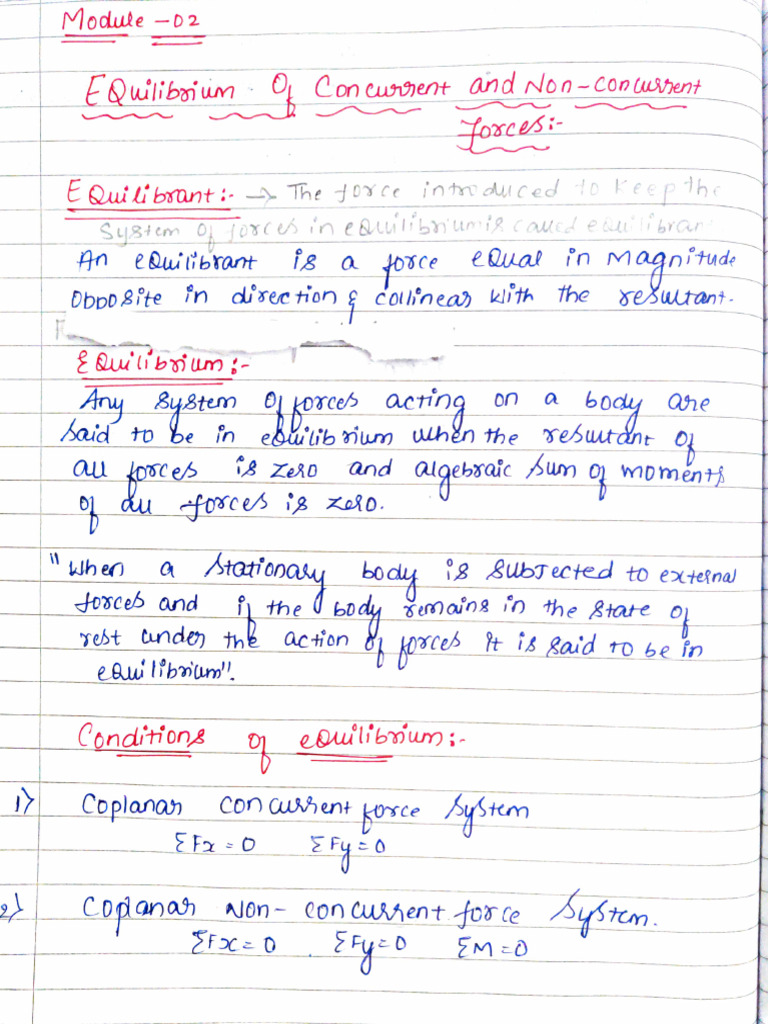 Module -02
EQuilibrium Of Concurrent and Non-concurrent
forces:-
EQuilibrant:- → The force introduced to keep the
System of forces in equilibrium is called equilibran
An eQuilibrant is a force eQual in Magnitude
opposite in direction & collinear with the resultant.
EQuilibrium:-
Any System of forces acting on a body are
said to be in eQuilibrium when the resultant of
all forces is zero and algebraic sum of moments
of all forces is zero.
"When a Stationary body is SUBJected to external
forces and if the body remains in the state of
rest under the action of forces it is said to be in
eQuilibrium".
Conditions of eQuilibrium:-
1) Coplanar concurrent force System
ΣFx = 0 ΣFy = 0
2) Coplanar Non-concurrent force System.
ΣFx = 0 ΣFy = 0 ΣM = 0